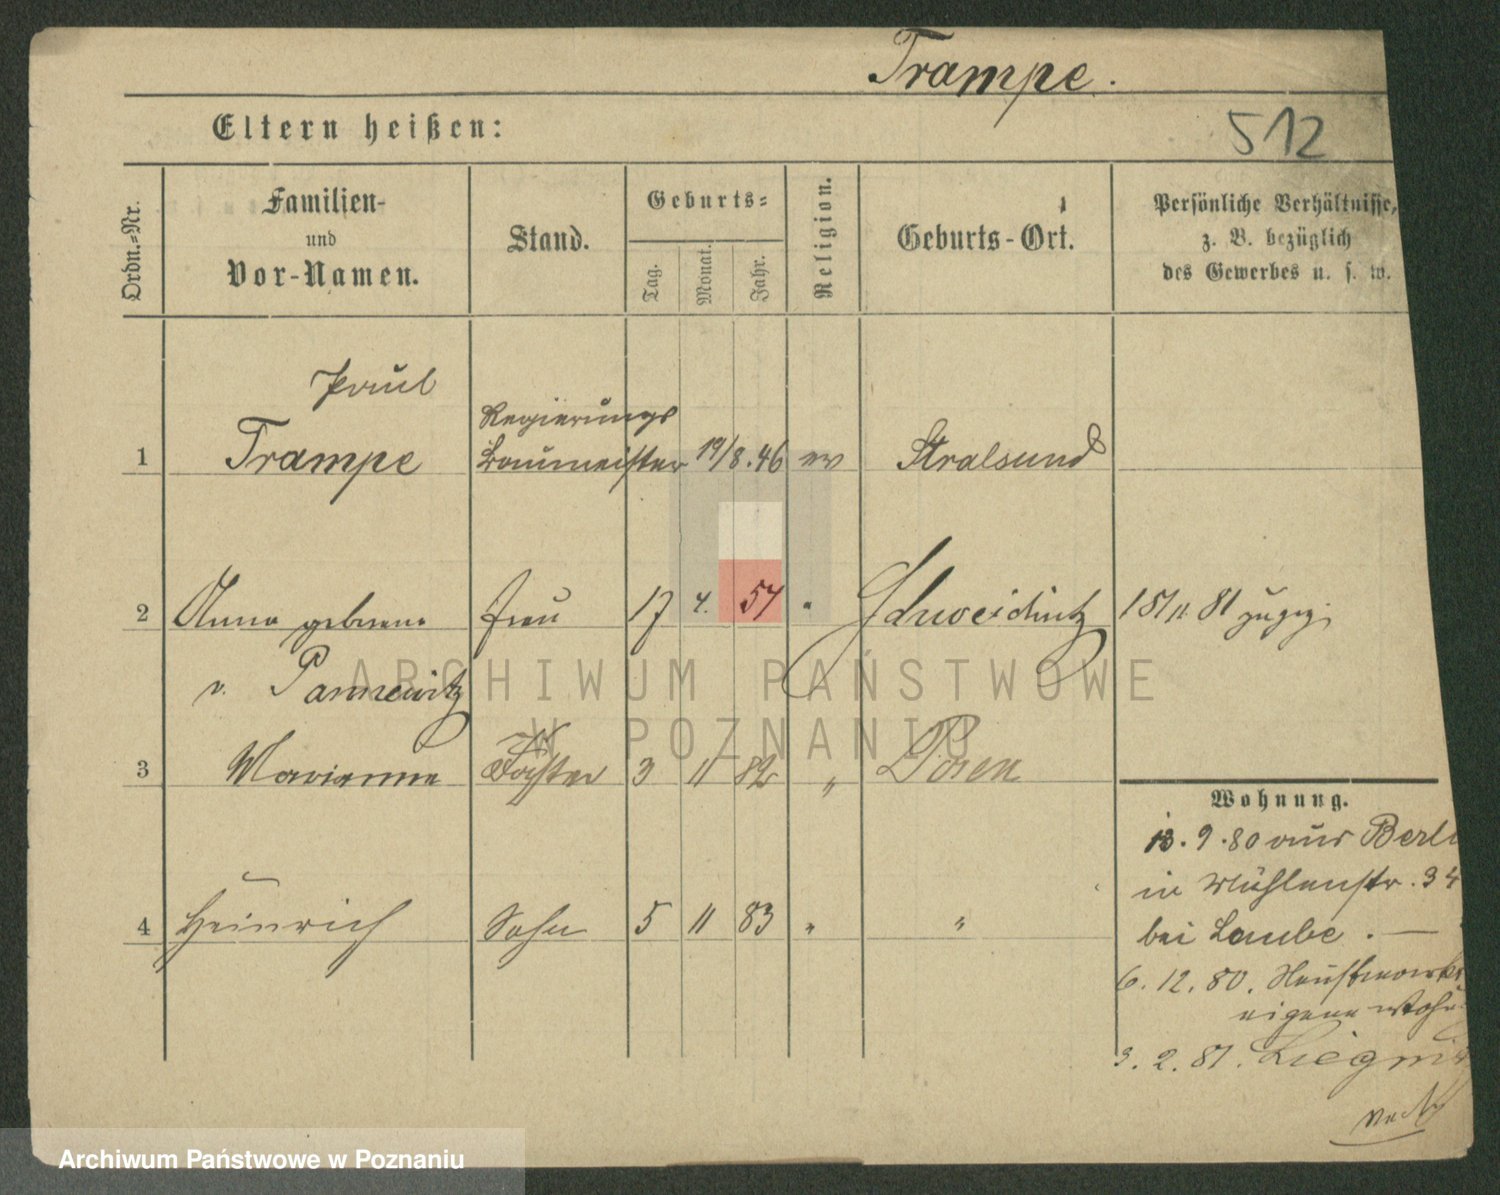 Trampe.
Eltern heißen:
512
Ordn.=Nr.
Familien-
und
Vor-Namen.
Stand.
Geburts=
Tag.
Monat.
Jahr.
Religion.
Geburts-Ort.
Persönliche Verhältnisse,
z. B. bezüglich
des Gewerbes u. s. w.
Paul
1 Trampe Regierungs
Baumeister 19/8.46 ev Stralsund
2 Anna geborene Frau 17 4. 57 " Schweidnitz
v. Pannewitz
3 Marianne Tochter 3 11 82 " Posen
4 Heinrich Sohn 5 11 83 " "
Wohnung.
13.9.80 aus Berli
in Mühlenstr. 34
bei Laube. —
6.12.80.
eigene Wohn
3.2.81. Liegnitz
ARCHIWUM PAŃSTWOWE
W POZNANIU
Archiwum Państwowe w Poznaniu